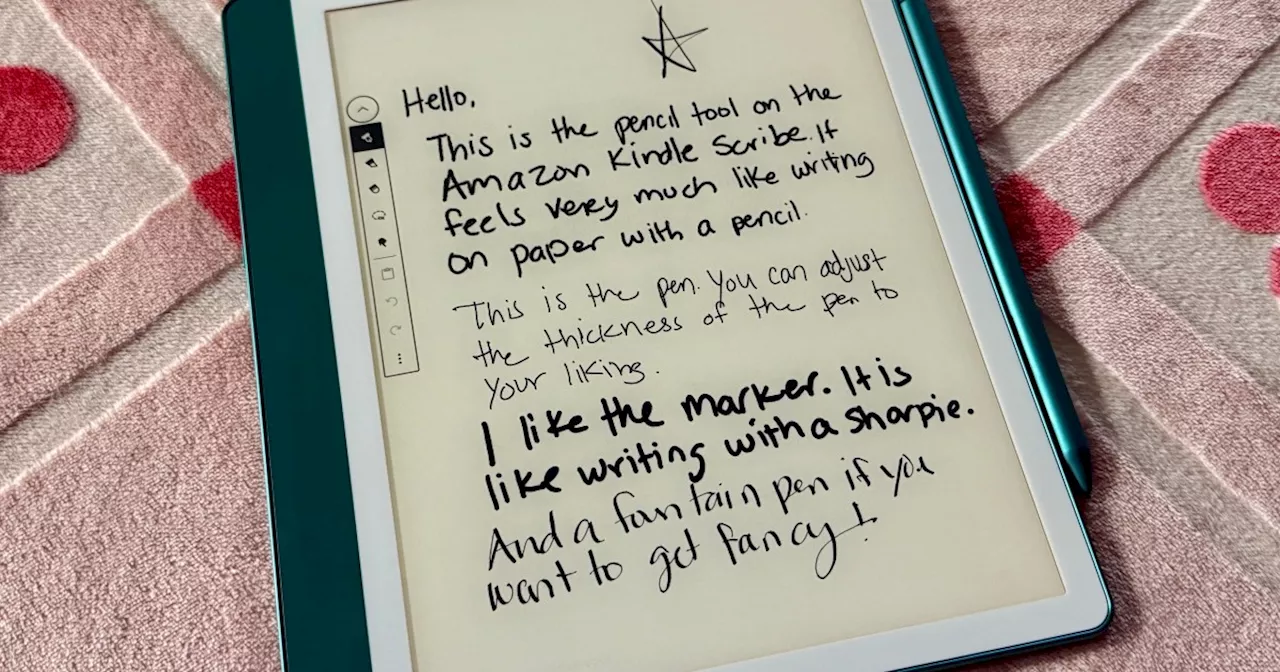 Hello,
This is the pencil tool on the
Amazon Kindle Scribe. It
feels very much like writing
on paper with a pencil.
This is the pen. You can adjust
the thickness of the pen to
your liking.
I like the marker. It is
like writing with a sharpie.
And a fountain pen if you
want to get fancy!